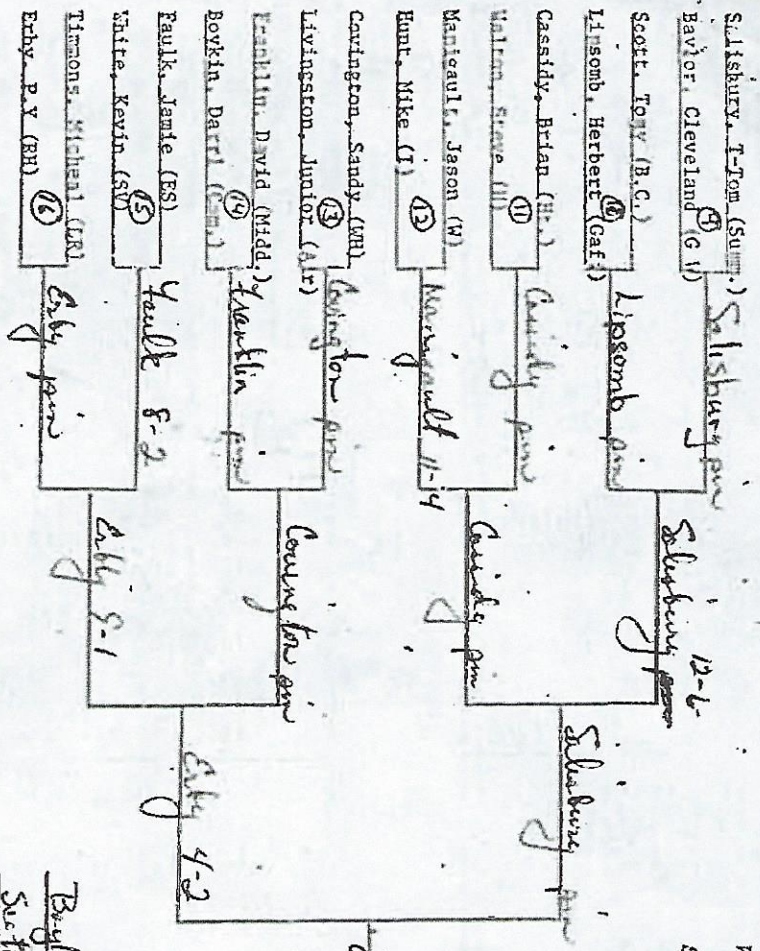 Salisbury, T-Tom (Summ.)
Baylor, Cleveland (G W)
Scott, Tony (B.C.)
Lipsomb, Herbert (Gaf.)
Cassidy, Brian (Ht.)
Walton, Steve
Manigault, Jason (W)
Hunt, Mike (I)
Covington, Sandy (WH)
Livingston, Junior (Air)
Franklin, David (Midd.)
Boykin, Darrl (Cam.)
Faulk, Jamie (ES)
White, Kevin (SV)
Timmons, Micheal (LR)
Erby P.Y (RH)
9
10
11
12
13
14
15
16
Salisbury pin
Lipsomb pin
Cassidy pin
Manigault 11-4
Covington pin
Franklin pin
Faulk 8-2
Erby pin
Salisbury 12-6
Cassidy pin
Covington pin
Erby 5-1
Salisbury pin
Erby 4-2